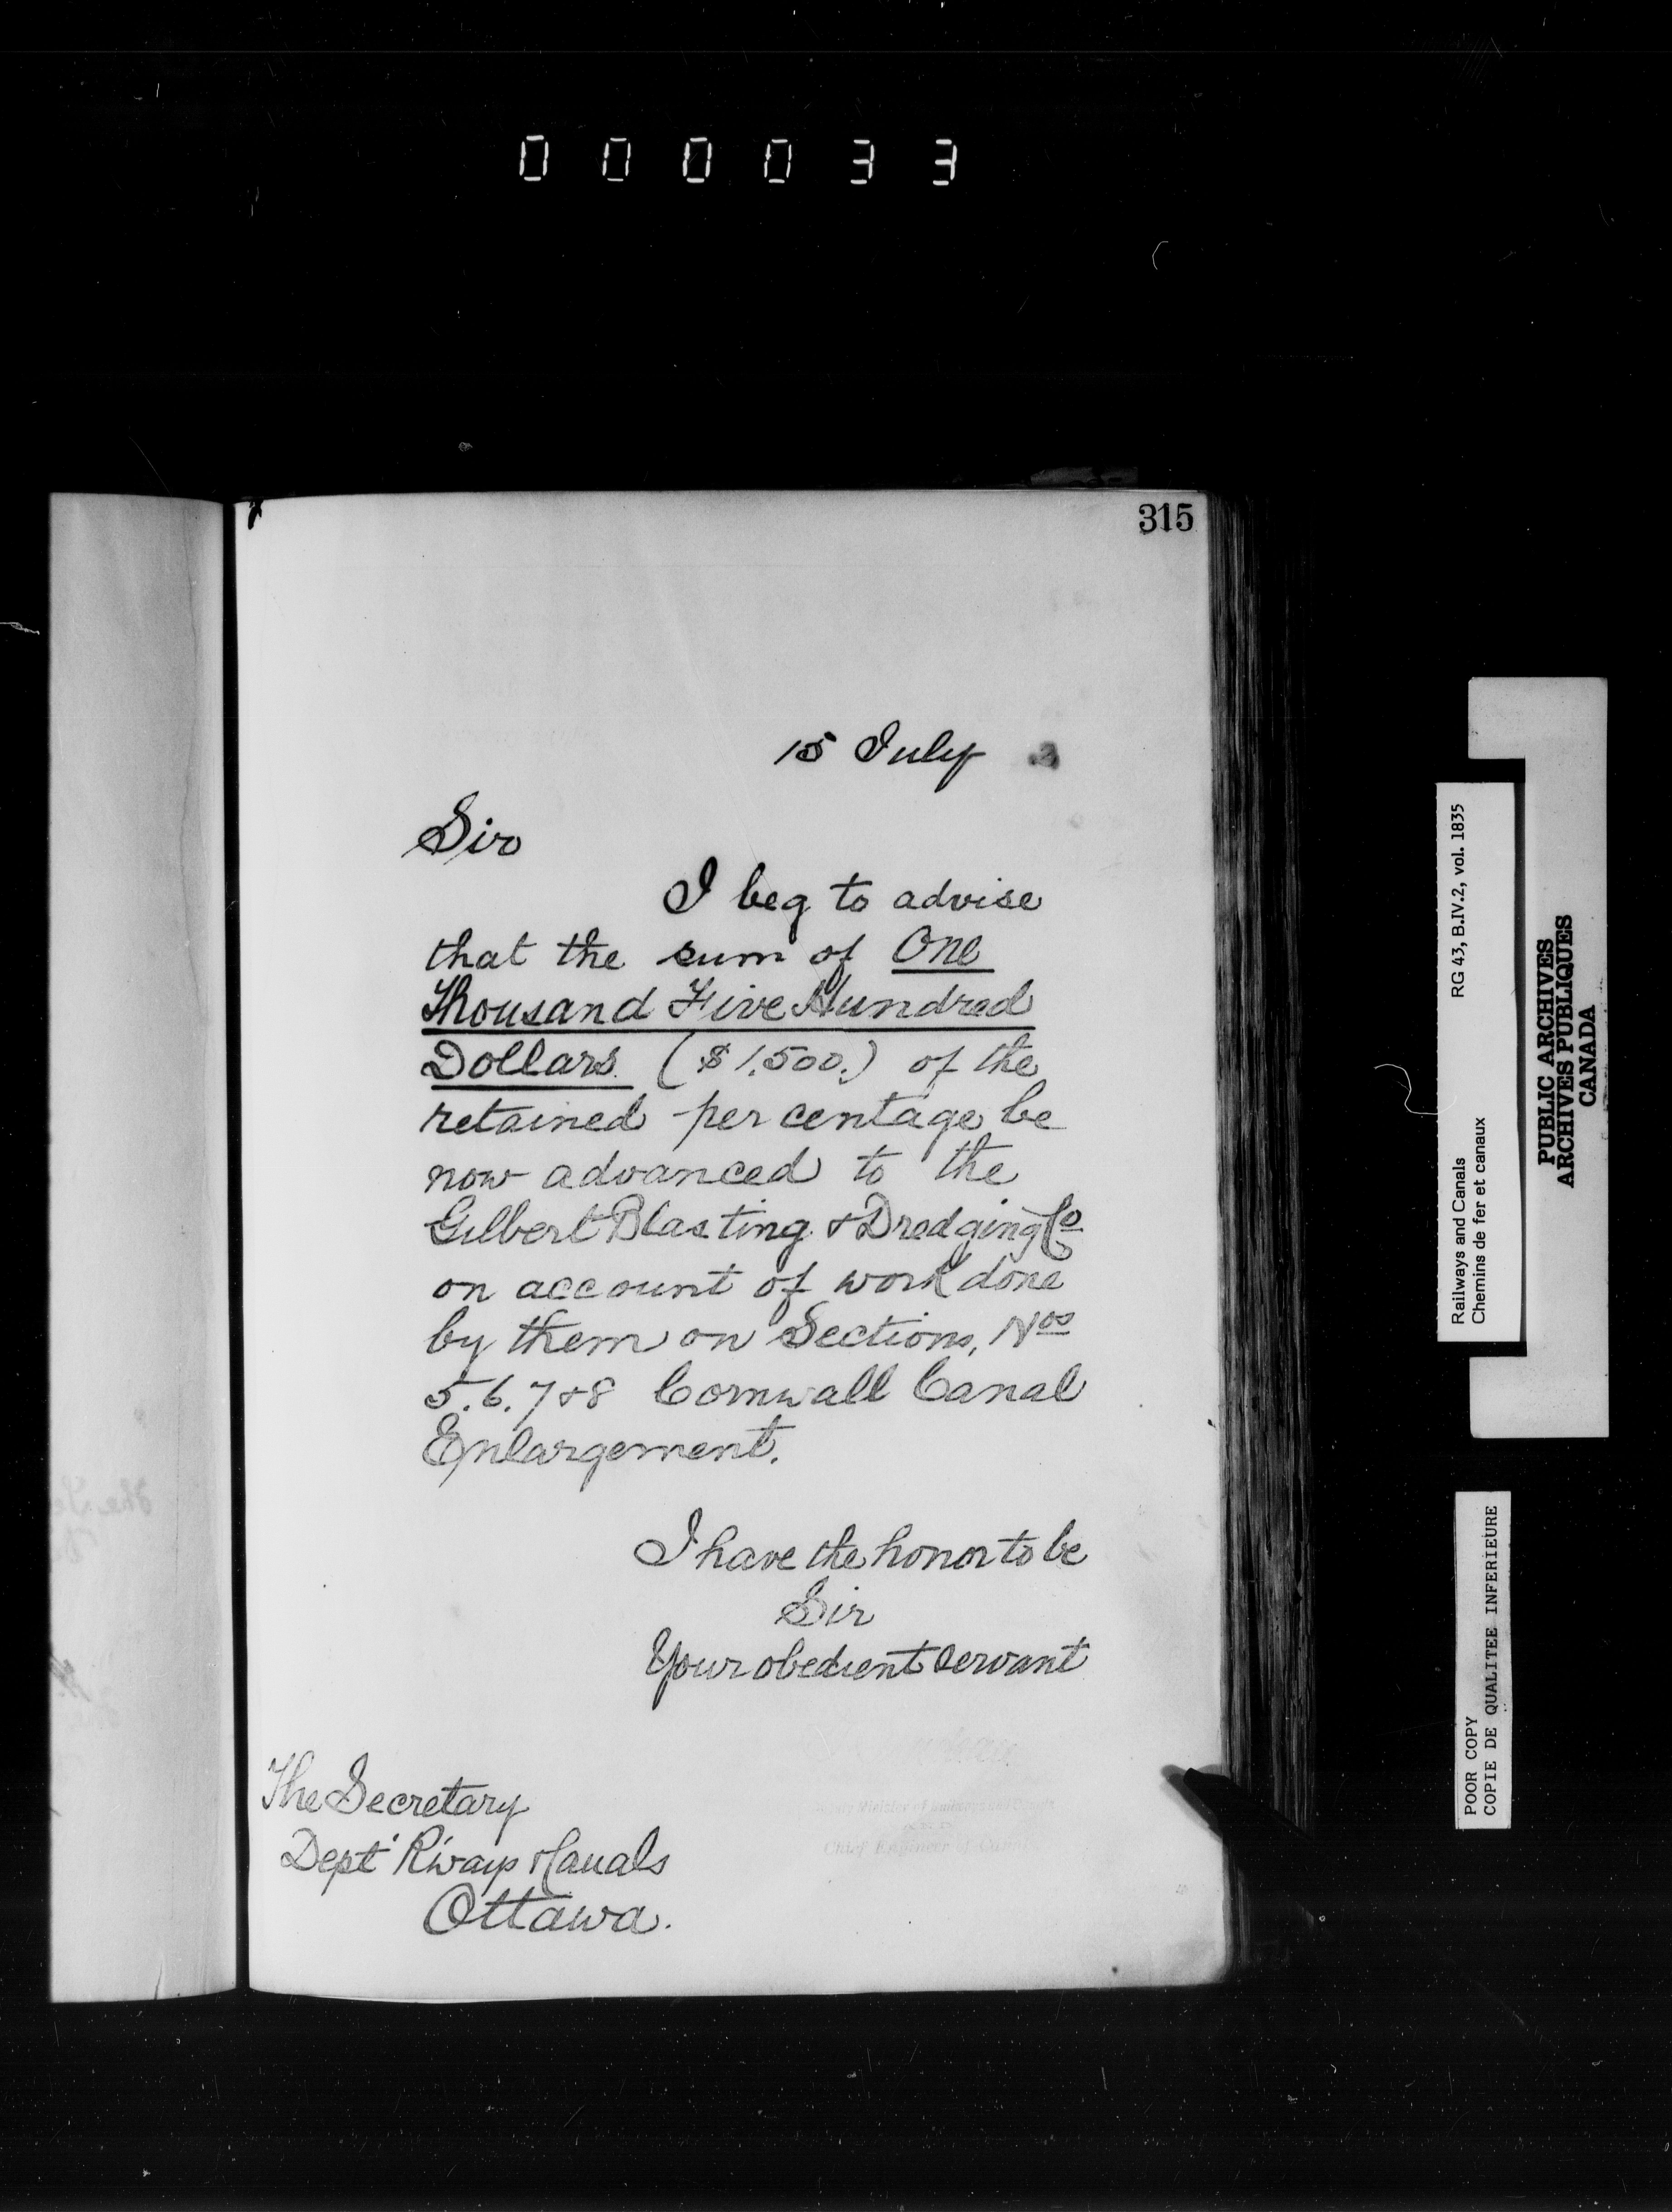 000033
315
15 July
Sir
I beg to advise
that the sum of One
Thousand Five Hundred
Dollars. ($1,500.) of the
retained per centage be
now advanced to the
Gilbert Blasting & Dredging Co
on account of work done
by them on Sections, Nos
5.6.7 & 8 Cornwall Canal
Enlargement.
I have the honor to be
Sir
Your obedient servant
Minister of Railways and Canals
Chief Engineer of
The Secretary
Dept R'ways & Canals
Ottawa.
Railways and Canals RG 43, B.IV.2, vol. 1835
Chemins de fer et canaux
PUBLIC ARCHIVES
ARCHIVES PUBLIQUES
CANADA
POOR COPY
COPIE DE QUALITEE INFERIEURE